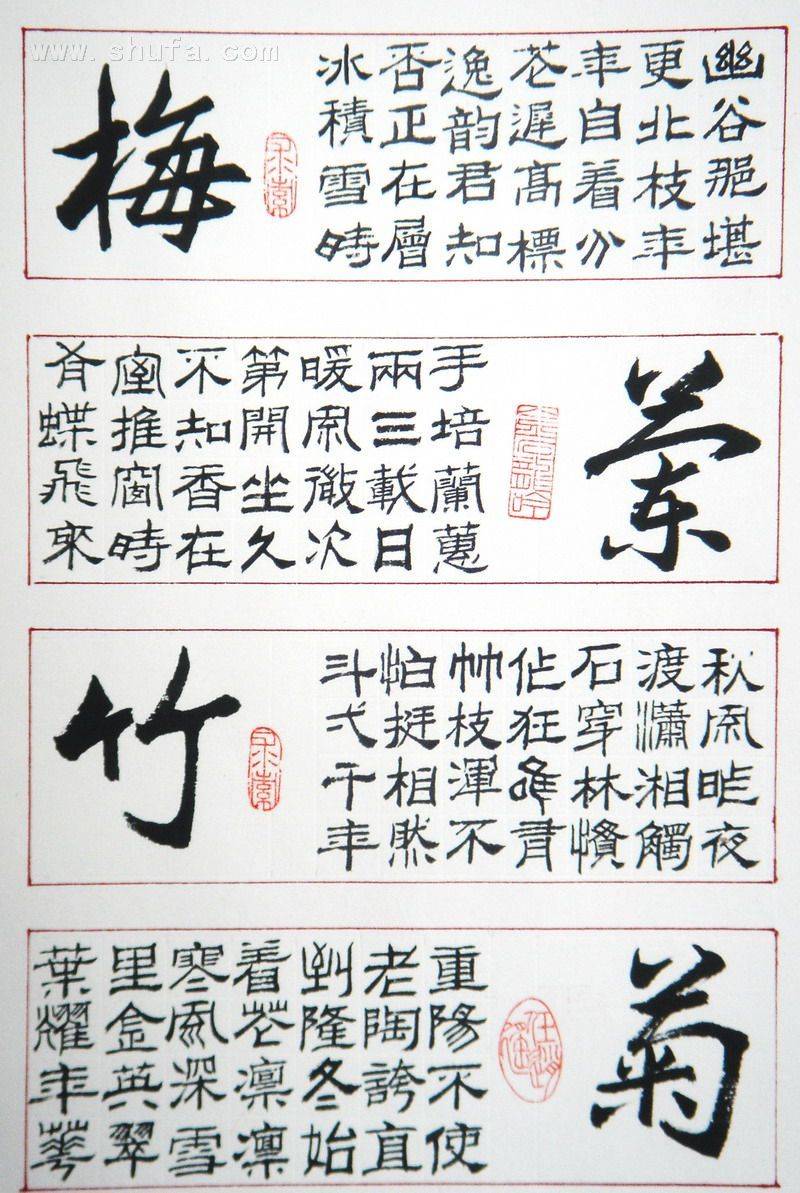 www.shufa.com
幽谷那堪
更北枝年
年自着分
花遲高標
逸韵君知
否正在層
冰積雪時
梅
蘭
手培蘭蕙
兩三載日
暖風微次
第開坐久
不知香在
室推窗時
有蝶飛來
秋風昨夜
渡瀟湘觸
石穿林慣
作狂唯有
竹枝渾不
怕挺相然
斗弌千年
竹
菊
重陽不使
老陶誇直
到隆冬始
着花凛凛
寒風深雪
里金英翠
葉耀年華